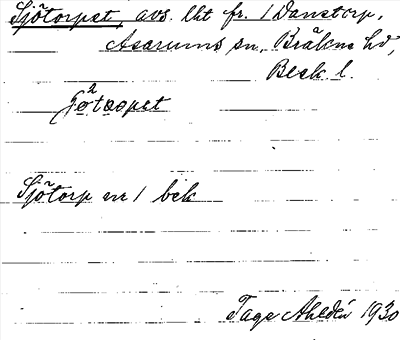 Sjötorpet, avs. lht fr. 1 Danstorp,
Asarums sn, Bräkne hd,
Blek l.
2
Sjötorp nr 1 bek
Tage Ahldén 1930